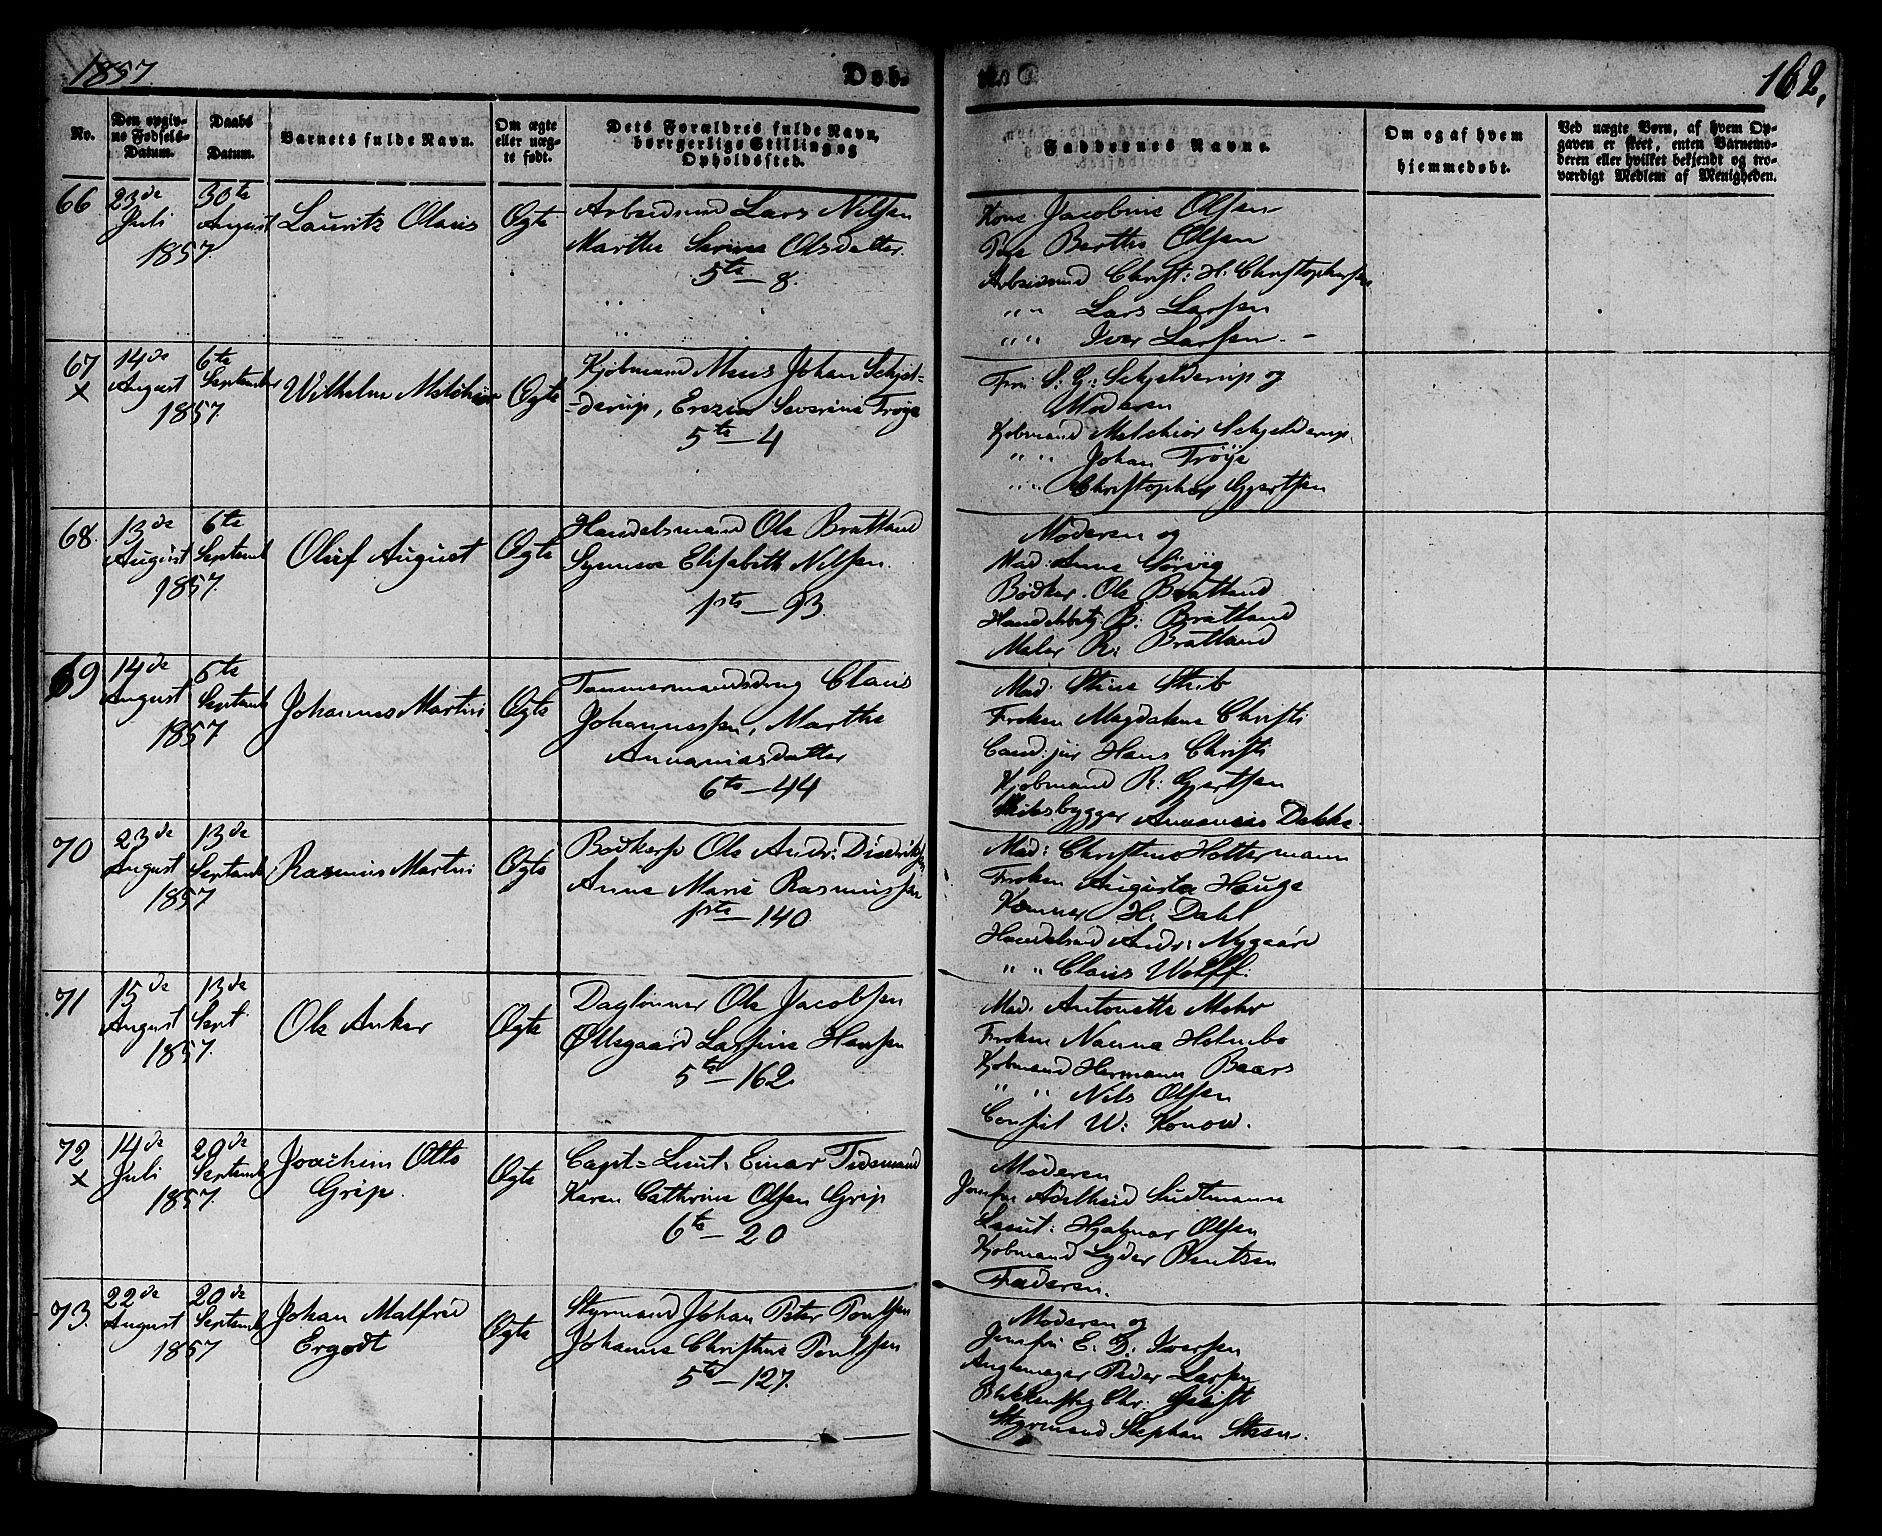 1857.
Døb.
162.
No.
Den opgiv-
ne Fødsels-
Datum.
Daabs
Datum.
Barnets fulde Navn.
Om ægte
eller uæg-
te født.
Dets Forældres fulde Navn,
borgerlige Stilling og
Opholdssted.
Faddernes Navne.
Om og af hvem
hjemmedøbt.
Ved uægte Børn, af hvem Op-
gaven er skeet, enten Barnemo-
deren eller hvilket bekjendt og tro-
værdigt Medlem af Menigheden.
66
23de
Juli
1857.
30te
August
Lauritz Olaus
Ægte
Arbeidsmd Lars Nilsen
Marthe Serine Olsdatter.
5te - 8.
Kone Jacobine Olsen
Pige Berthe Olsen
Arbeidsmd Christ: H. Christophersen
" " Lars Larsen
" " Iver Larsen.
67
x
14de
August
1857
6te
September
Wilhelm Melchior
Ægte
Kjøbmand Mens Johan Schjel-
-derup, Erezia Severine Trøye
5te - 4
Fru S: G: Schjelderup og
Moderen
Kjøbmand Melchior Schjelderup.
" " Johan Trøye
" " Christopher Gjertsen
68.
13de
August
1857.
6te
Septemb
Oluf August
Ægte
Handelsmand Ole Brattland
Elisabeth Nilsen.
1ste - 93.
Moderen og
Mad: Anne Sørvig
Bødker Ole Brattland
B: Brattland
Maler R: Brattland
69
14de
August
1857
6te
Septemb
Johannes Martin
Ægte
Tømmermandsdrng Claus
Johannessen, Marthe
Annaniasdatter
6te - 44
Mad: Stine Stub
Frøken Magdalene Christi
Cand: jur Hans Christi
Kjøbmand R: Gjertsen
Skibsbygger Annanias Dekke.
70
23de
August
1857
13de
Septemb
Rasmus Martin
Ægte
Bødkersv Ole Andr: Diedriksen
Anne Marie Rasmussen
1ste - 140
Mad: Christine Holtermann
Frøken Augusta Hauge
Kemner H. Dahl
Handelsmd Andr: Nygaard
" " Claus Wolff.
71
15de
August
1857.
13de
Sept.
Ole Anker
Ægte
Dagløner Ole Jacobsen
Øllegaard Larsine Hansen
5te - 162.
Mad. Antonette Mohr
Frøken Nanna Holmbo
Kjøbmand Hermann Baars
" " Nils Olsen
Consul W: Konow.
72
x
14de
Juli
1857.
20de
Septemb
Joachim Otto
Grip.
Ægte
Capt=Lieut: Einar Tidemand
Karen Cathrine Olsen Grip
6te - 20
Moderen
Jomfru Adelheid Sudtmann
Lieut: Hjalmar Olsen
Kjøbmand Lyder Bentsen
Faderen.
73.
22de
August
1857
20de
Septemb
Johan Malfred
Ergodt
Ægte
Styrmand Johan Peter Pontsen
Johanne Christine Pontsen
5te - 127.
Moderen og
Jomfru E. D: Iversen
Peder Larsen
Chr:
Styrmand Stephan Steen.